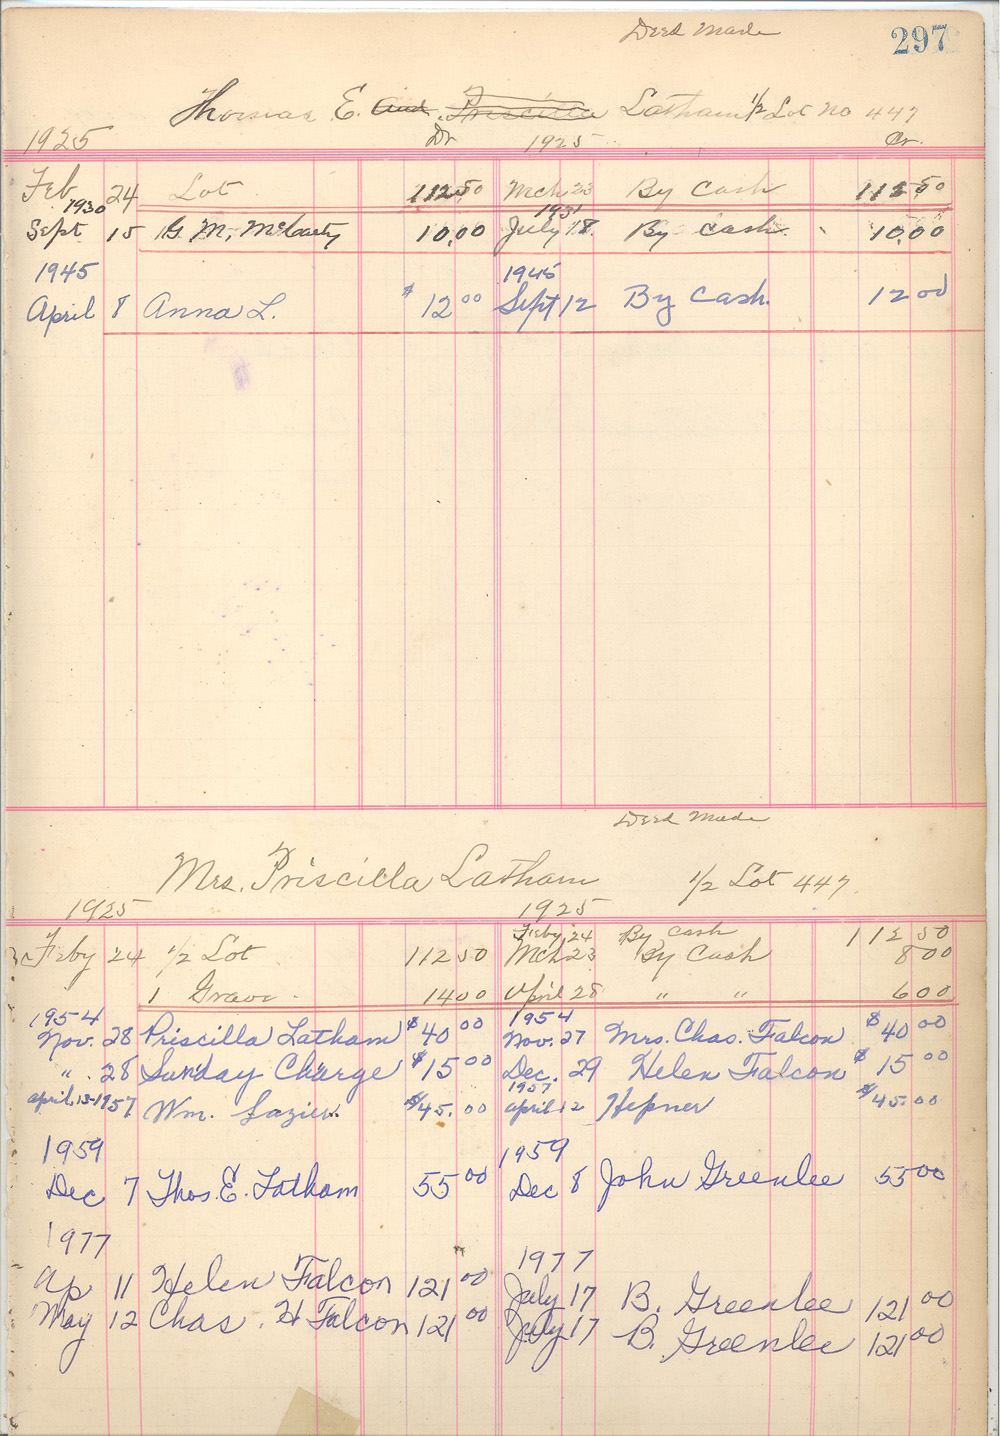 Deed Made
297
Thomas E. and Priscilla Latham 1/2 Lot No 447
1925 Dr 1925 Cr.
Feb 24 Lot 112.50 Mch 23 By Cash 112.50
1930 1931
Sept 15 G. M. McCarty 10.00 July 18. By Cash. 10.00
1945 1945
April 8 Anna L. $12 00 Sept 12 By Cash. 12 00
Deed Made
Mrs. Priscilla Latham 1/2 Lot 447.
1925 1925
Feby 24 By Cash 112 50
Feby 24 1/2 Lot 112 50 Mch 23 By Cash 8 00
1 Grave. 14 00 April 28 " " 6 00
1954 1954
Nov. 28 Priscilla Latham $40 00 Nov. 27 Mrs. Chas. Falcon $40 00
" . 28 Sunday Charge $15 00 Dec. 29 Helen Falcon $15 00
1957
April 13-1957 Wm. Lazier. $45.00 April 12 Hepner $45.00
1959 1959
Dec 7 Thos. E. Latham 55 00 Dec 8 John Greenlee 55 00
1977 1977
Ap 11 Helen Falcon 121 00 July 17 B. Greenlee 121 00
May 12 Chas. H Falcon 121 00 July 17 B. Greenlee 121 00